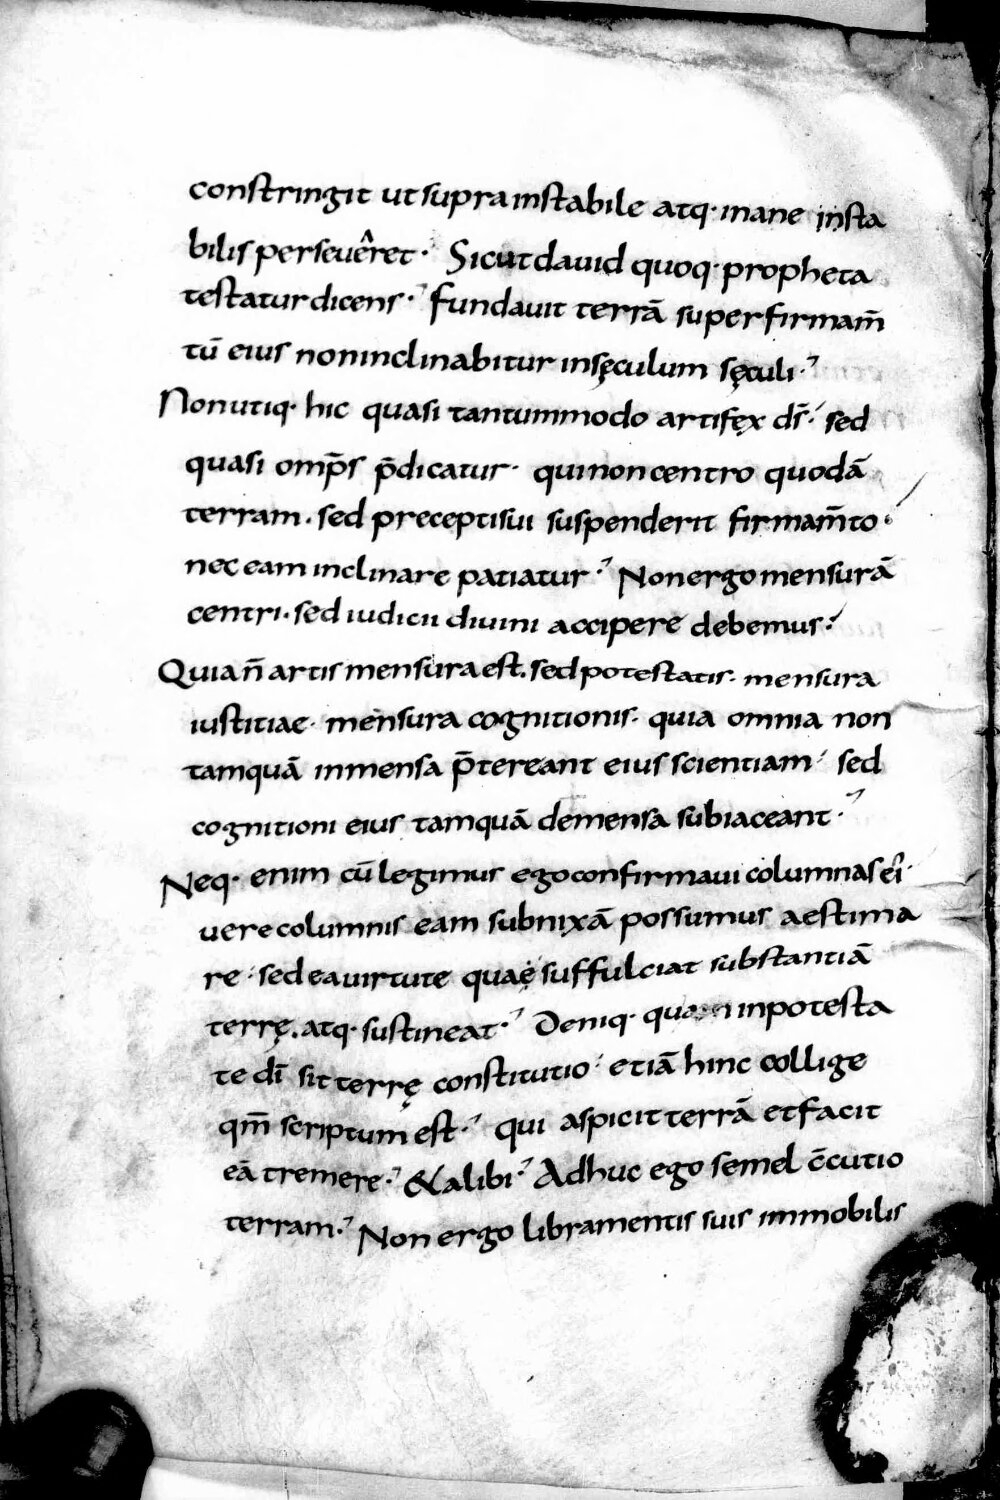 constringit ut supra instabile atq· inane insta
bilis perseueret· Sicut dauid quoq· propheta
testatur dicens· fundauit terrā super firmam̄
tū eius non inclinabitur in sęculum sęculi·
Non utiq· hic quasi tantummodo artifex ds̄· sed
quasi omp̄s p̄dicatur· qui non centro quodā
terram· sed precepti sui suspenderit firmam̄to·
nec eam inclinare patiatur· Non ergo mensurā
centri· sed iudicii diuini accipere debemus·
Quia n̄ artis mensura est. sed potestatis· mensura
iustitiae· mensura cognitionis· quia omnia non
tamquā inmensa p̄tereant eius scientiam· sed
cognitioni eius tamquā demensa subiaceant·
Neq· enim cū legimus ego confirmaui columnas ei·
uere columnis eam subnixā possumus aestima
re· sed ea uirtute quae suffulciat substantiā
terrę. atq· sustineat· Deniq· inpotesta
te dī sit terrę constitutio· etiā hinc collige
qm̄ scriptum est· qui aspicit terrā et facit
eā tremere· & alibi· Adhuc ego semel c̄cutio
terram· Non ergo libramentis suis immobilis